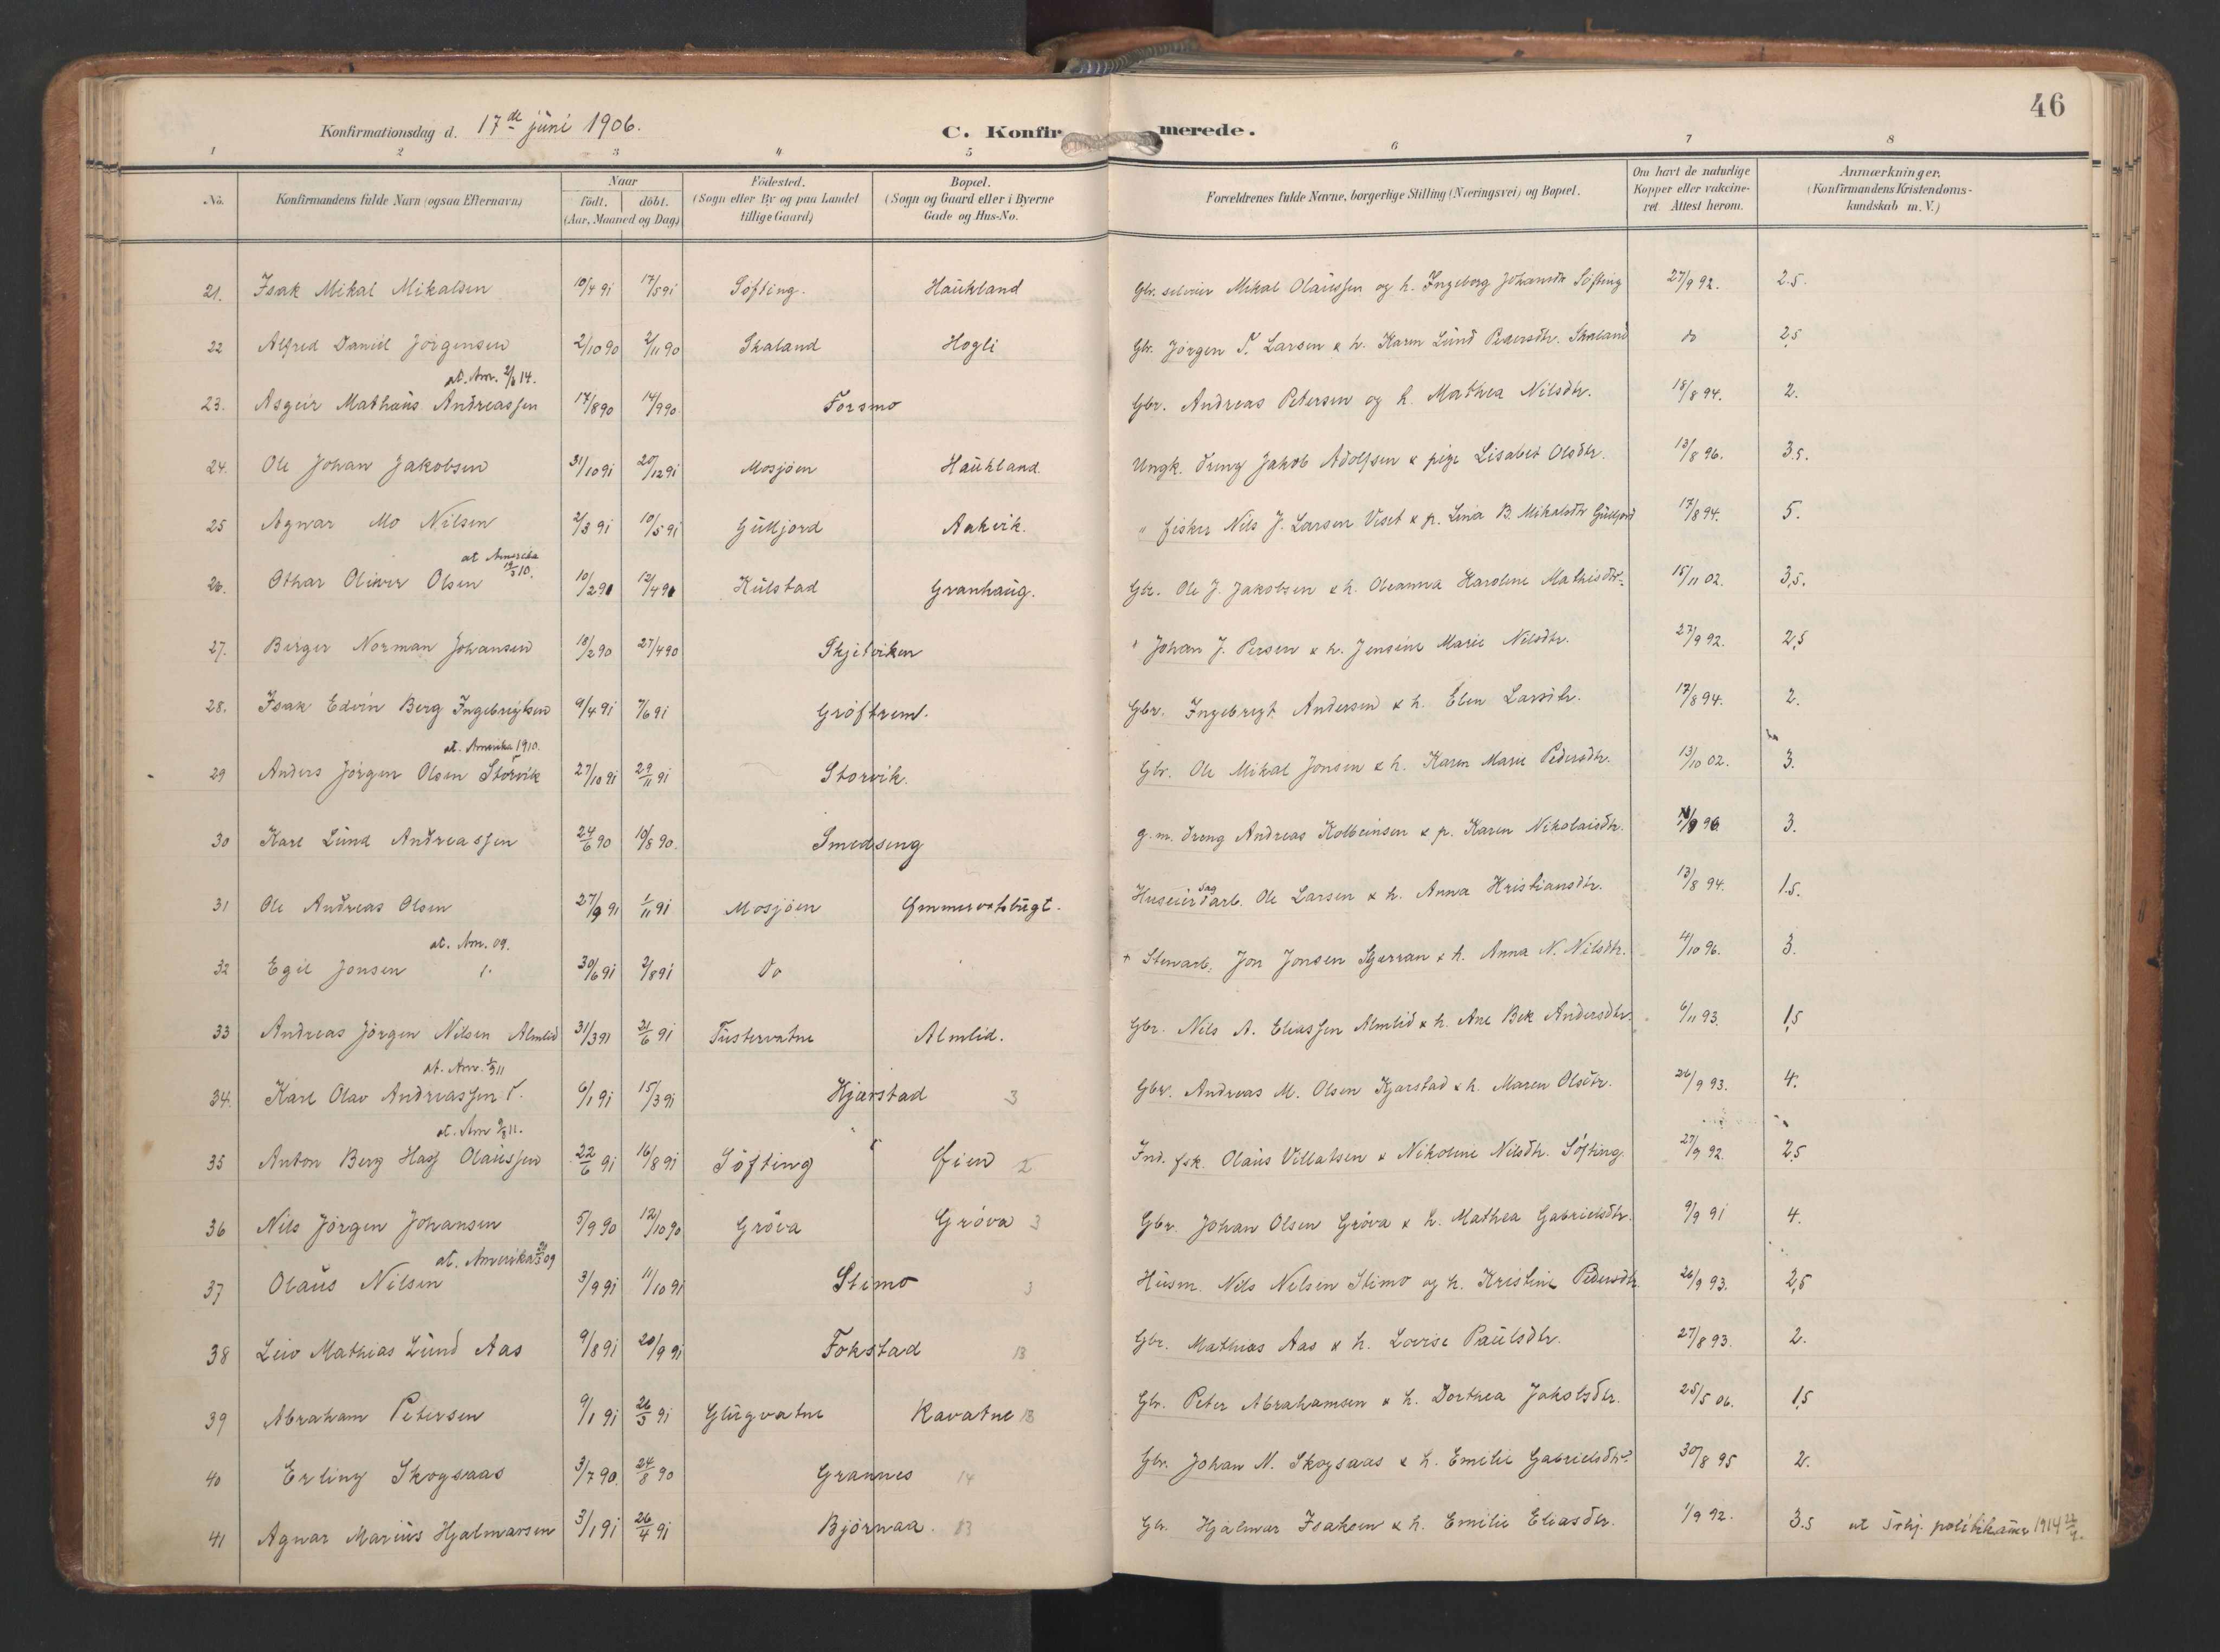 46
Konfirmationsdag d. 17de juni 1906. C. Konfirmerede.
1 2 3 4 5 6 7 8
No. Konfirmandens fulde Navn (ogsaa Efternavn) Naar födt. döbt. (Aar, Maaned og Dag) Födested. (Sogn eller By og paa Landet tillige Gaard) Bopæl. (Sogn og Gaard eller i Byerne Gade og Hus-No. Forældrenes fulde Navne, borgerlige Stilling (Næringsvei) og Bopæl. Om havt de naturlige Kopper eller vakcineret. Attest herom. Anmærkninger. (Konfirmandens Kristendomskundskab m. V.)
21. Isak Mikal Mikalsen 10/4 91 17/5 91 Söfting. Haukland Gbr. Mikal Olaussen og h. Ingeborg Johansdtr Söfting 27/9 92. 2.5.
22 Alfred Daniel Jörgensen 2/10 90 2/11 90 Skaland Hogli Gbr. Jörgen T. Larsen & h. Karen Lund Pedersdtr. Skaland do 2,5
at. Am. 2/3 14.
23. Asgeir Mathæus Andreassen 17/8 90 14/9 90 Forsmo Gbr. Andreas Petersen og h. Mathea Nilsdtr. 18/8 94. 2.
24. Ole Johan Jakobsen 31/10 91 20/12 91 Mosjöen Haukland. Ungk. dreng Jakob Adolfsen & pige Lisabet Olsdtr. 13/8 96. 3.5.
25 Agnar Mo Nilsen 2/3 91 10/5 91 Gulfjord Aakvik. " fisker Nils J. Larsen Viset & p. Lina B. Mikalsdtr Gulfjord 17/8 94. 5.
at Amerika 19/3 10.
26. Othar Oliver Olsen 10/2 90 12/4 90 Kulstad Granhaug. Gbr. Ole J. Jakobsen & h. Oleanna Karoline Mathisdtr. 15/11 02. 3,5.
27. Birger Norman Johansen 18/2 90 27/4 90 Skjelviken " Johan J. Persen & h. Jensine Marie Nilsdtr. 27/9 92. 2,5
28. Isak Edvin Berg Ingebrigtsen 9/4 91 7/6 91 Gröftrem. Gbr. Ingebrigt Andersen & h. Elen Larsdtr. 17/8 94. 2.
at. Amerika 1910.
29 Anders Jörgen Olsen Storvik 27/10 91 29/11 91 Storvik. Gbr. Ole Mikal Jonsen & h. Karen Marie Pedersdtr. 13/10 02. 3.
30 Karl Lund Andreassen 24/6 90 10/8 90. Smedseng g.m. dreng Andreas Kolbeinsen & p. Karen Nikolaisdtr. /9 96. 3.
31 Ole Andreas Olsen 27/9 91 1/11 91 Mosjöen Ömmervatsbugt. Huseier sagarb. Ole Larsen & h. Anna Kristiansdtr. 13/8 94. 1.5.
at. Am. 09.
32 Egil Jonsen 30/6 91 2/8 91 Do Stenarb. Jon Jonsen Kjerran & h. Anna N. Nilsdtr. 4/10 96. 3.
33 Andreas Jörgen Nilsen Almlid 31/3 91 21/6 91 Tustervatne Almlid. Gbr. Nils A. Eliassen Almlid & h. Ane Bek Andersdtr. 6/11 93. 1,5
at. Am. 3 11
34. Karl Olav Andreassen 6/1 91 15/3 91 Kjærstad 3 Gbr. Andreas M. Olsen Kjærstad & h. Maren Olsdtr. 26/9 93. 4.
at. Am 9/3 11.
35 Anton Berg Hass Olaussen 22/6 91 16/8 91 Söfting Öien Ind. fsk. Olaus Villatsen & Nikoline Nilsdtr. Söfting 27/9 92. 2,5
36 Nils Jörgen Johansen 5/9 90 12/10 90 Gröva Gröva 3 Gbr. Johan Olsen Gröva & h. Mathea Gabrielsdtr. 9/9 91 4.
at. Amerika 09
37 Olaus Nilsen 3/9 91 11/10 91 Stimo 3 Husm. Nils Nilsen Stimo og h. Kristine Pedersdtr. 26/9 93. 2,5
38 Leiv Mathias Lund Aas 9/8 91 20/9 91 Fokstad 13 Gbr. Mathias Aas & h. Lovise Paulsdtr. 27/8 93. 2.
39 Abraham Petersen 9/1 91 26/5 91 Glugvatne Ravatne 13 Gbr. Peter Abrahamsen & h. Dorthea Jakobsdtr. 25/5 06. 1,5
40 Erling Skogsaas 3/7 90. 24/8 90 Grannes 14 Gbr. Johan N. Skogsaas & h. Emilie Gabrielsdtr. 30/8 95 2.
41 Agnar Marius Hjalmarsen 3/1 91 26/4 91 Björnaa. 13 Gbr. Hjalmar Isaksen & h. Emilie Eliasdtr. 1/9 92. 3.5 at Trhj. politikamer 1914